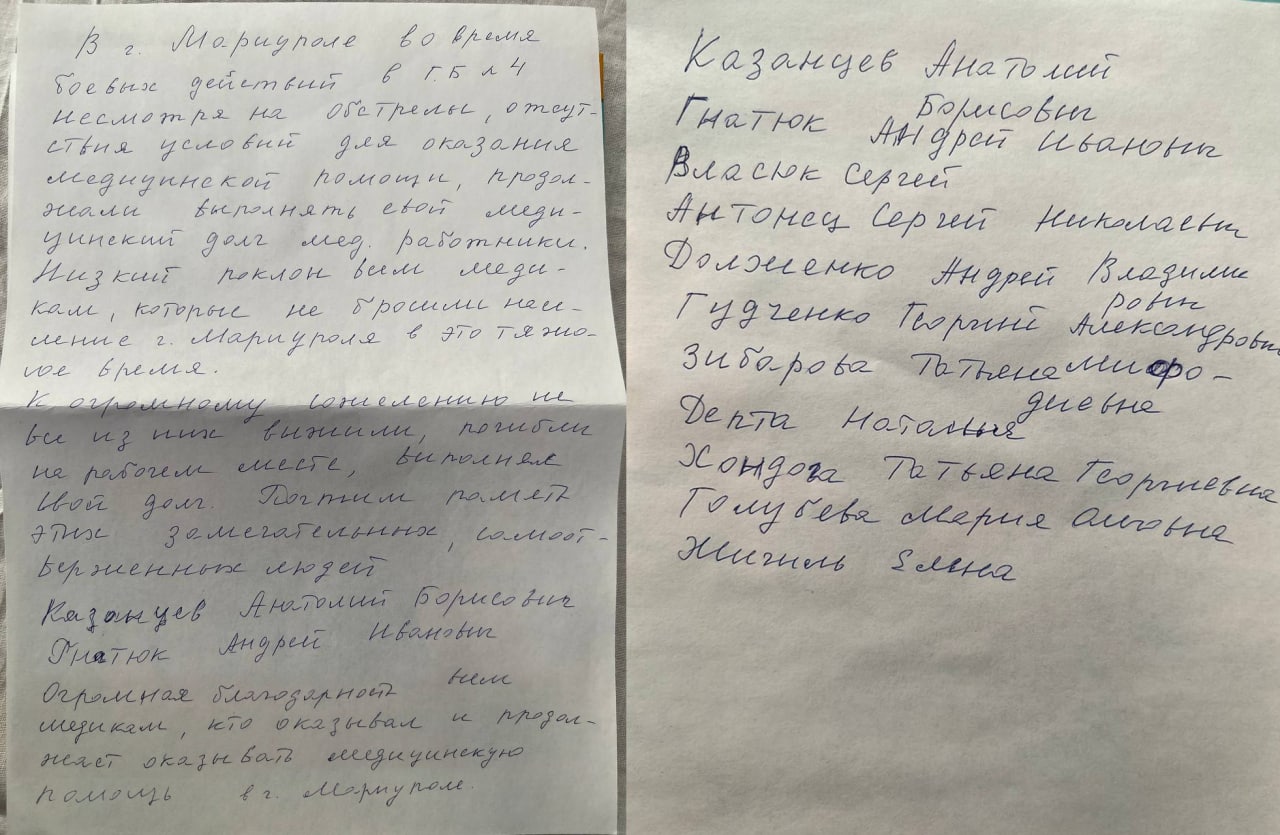 В г. Мариуполе во время
боевых действий в Г.Б л 4
несмотря на обстрелы, отсут-
ствия условий для оказания
медицинской помощи, продол-
жали выполнять свой меди-
цинский долг мед. работники.
Низкий поклон всем меди-
кам, которые не бросили насе-
ление г. Мариуполя в это тяжо-
лое время.
К огромному сожелению не
все из них выжили, погибли
на рабочем месте, выполняя
свой долг. Почтим память
этих замечательных, самоот-
верженных людей
Казанцев Анатолий Борисович
Гнатюк Андрей Иванович
Огромная благодарность всем
медикам, кто оказывал и продол-
жает оказывать медицинскую
помощь в г. Мариуполе.
Казанцев Анатолий
Борисович
Гнатюк Андрей Иванович
Власюк Сергей
Антонец Сергей Николаевич
Долженко Андрей Владими
рович
Гудченко Георгий Александрович
Зибарова Татьяна Мифо-
диевна
Депта Наталья
Хондога Татьяна Георгиевна
Голубева Мария
Жигиль Елена